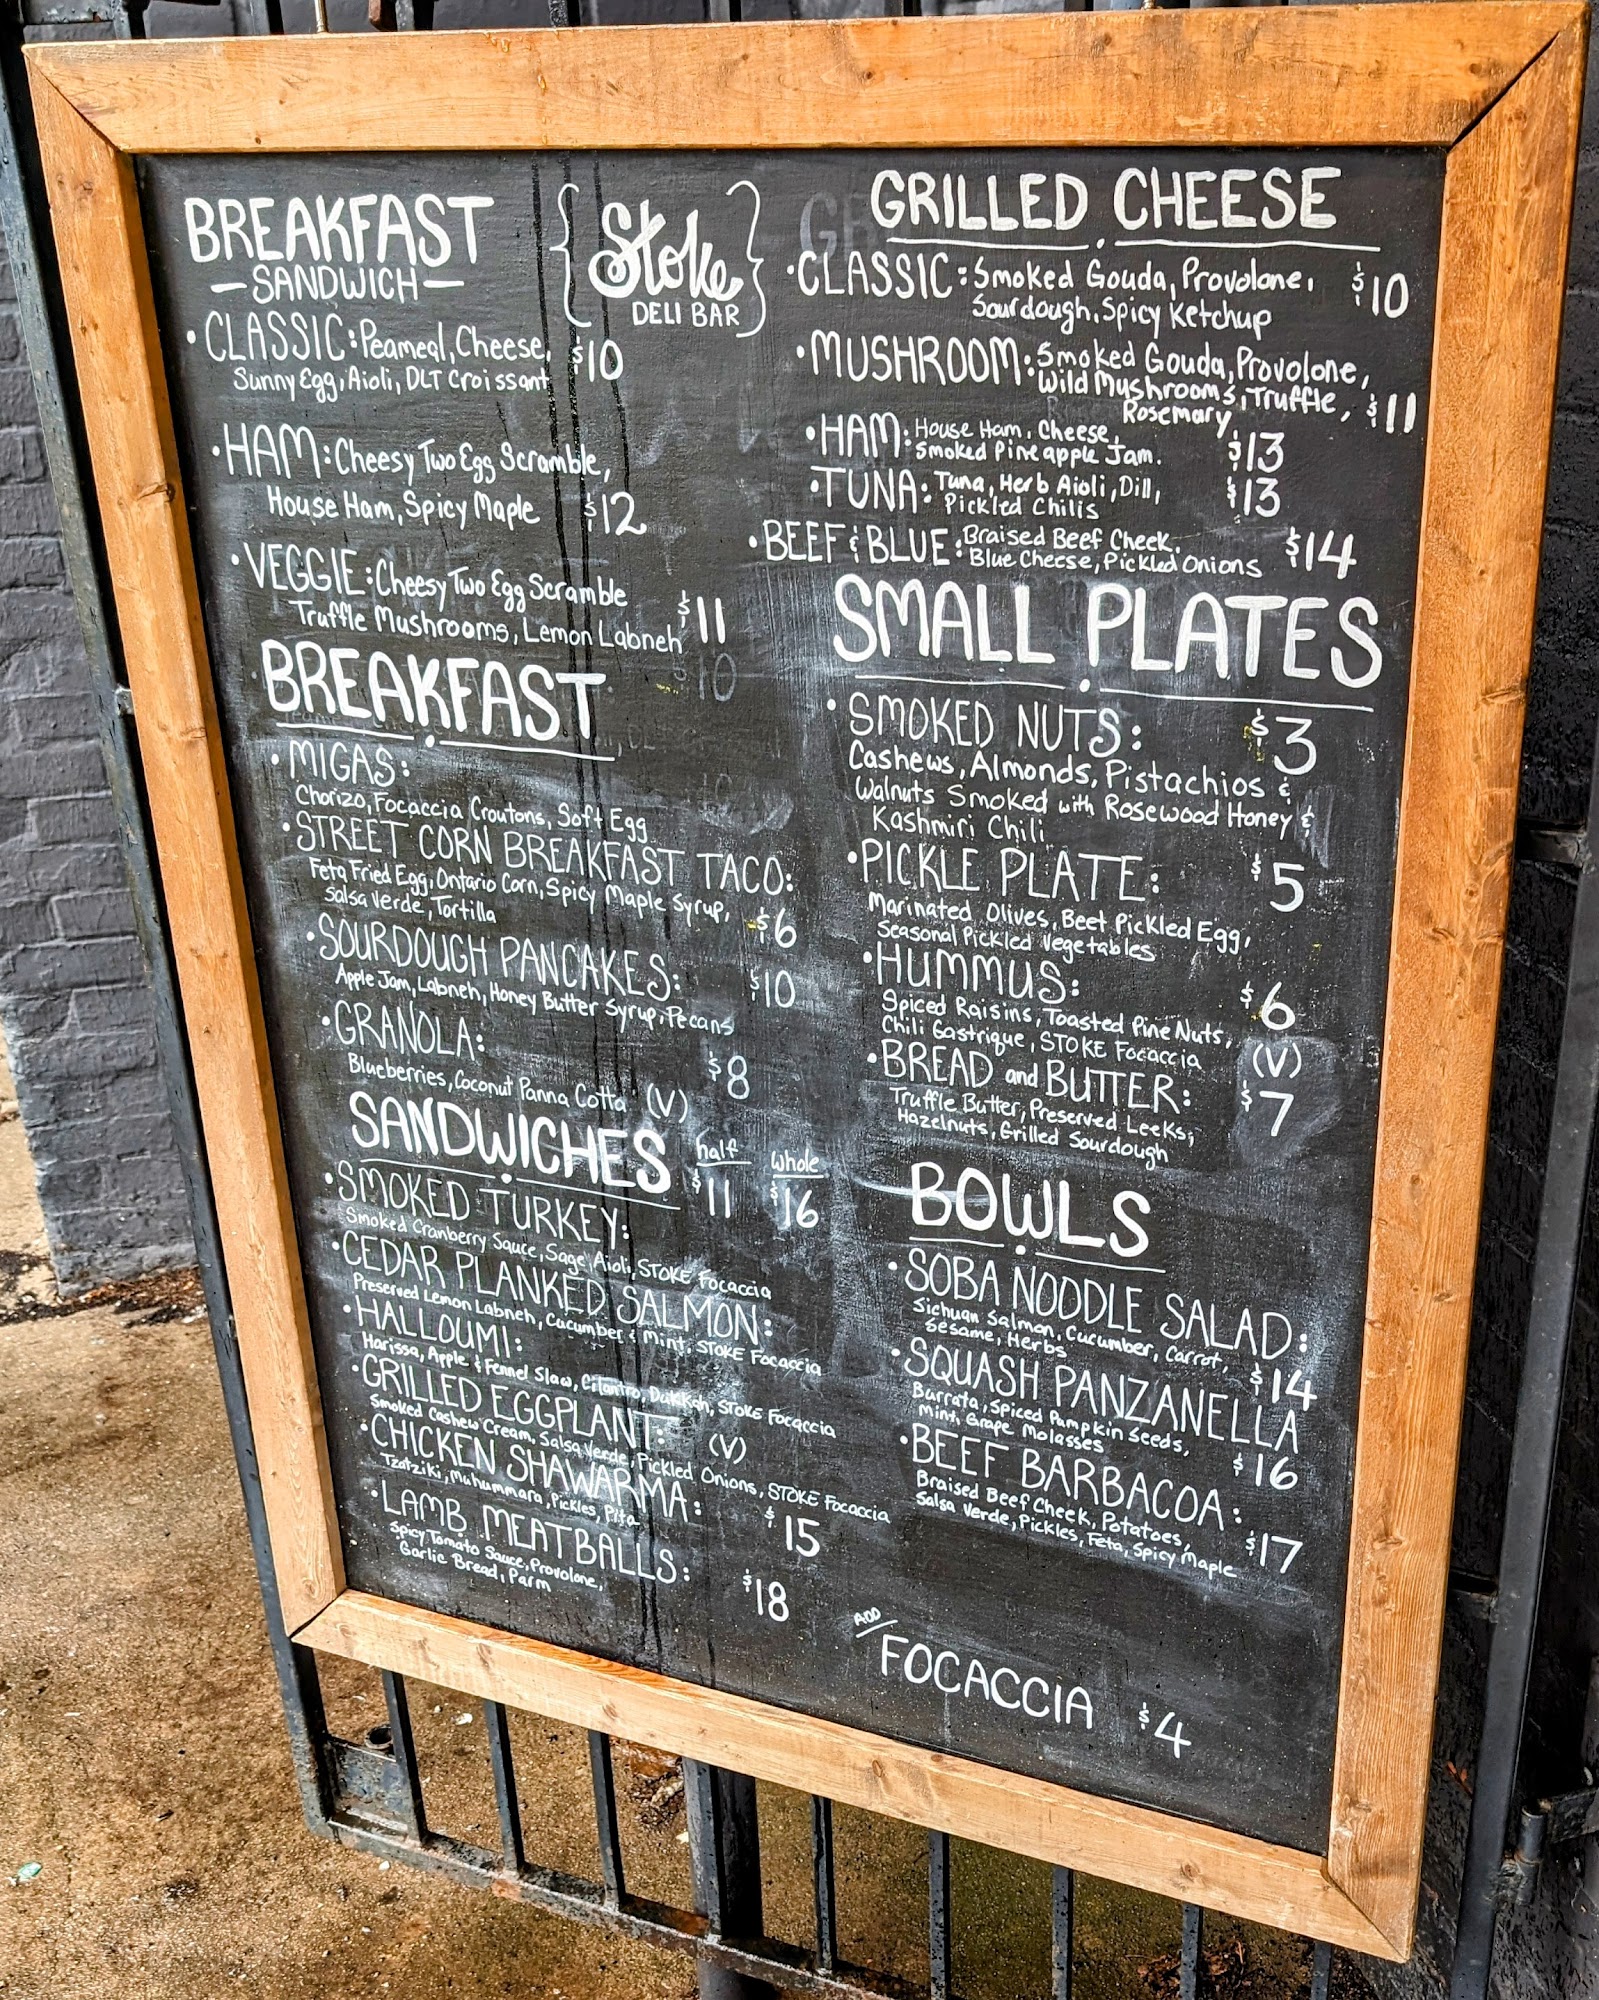 BREAKFAST
—SANDWICH—
• CLASSIC: Peameal, Cheese, $10
Sunny Egg, Aioli, DLT Croissant
• HAM: Cheesy Two Egg Scramble,
House Ham, Spicy Maple $12
• VEGGIE: Cheesy Two Egg Scramble
Truffle Mushrooms, Lemon Labneh $11
{ Stoke }
DELI BAR
BREAKFAST
• MIGAS:
Chorizo, Focaccia Croutons, Soft Egg
• STREET CORN BREAKFAST TACO:
Feta Fried Egg, Ontario Corn, Spicy Maple Syrup,
Salsa Verde, Tortilla $6
• SOURDOUGH PANCAKES: $10
Apple Jam, Labneh, Honey Butter Syrup, Pecans
• GRANOLA: $8
Blueberries, Coconut Panna Cotta (V)
SANDWICHES half $11 whole $16
• SMOKED TURKEY:
Smoked Cranberry Sauce, Sage Aioli, STOKE Focaccia
• CEDAR PLANKED SALMON:
Preserved Lemon Labneh, Cucumber & Mint, STOKE Focaccia
• HALLOUMI:
Harissa, Apple & Fennel Slaw, Cilantro, Dukkah, STOKE Focaccia
• GRILLED EGGPLANT: (V)
Smoked Cashew Cream, Salsa Verde, Pickled Onions, STOKE Focaccia
• CHICKEN SHAWARMA: $15
Tzatziki, Muhummara, Pickles, Pita
• LAMB MEATBALLS: $18
Spicy Tomato Sauce, Provolone,
Garlic Bread, Parm
GRILLED CHEESE
• CLASSIC: Smoked Gouda, Provolone, $10
Sourdough, Spicy Ketchup
• MUSHROOM: Smoked Gouda, Provolone,
Wild Mushrooms, Truffle, $11
Rosemary
• HAM: House Ham, Cheese, $13
Smoked Pineapple Jam.
• TUNA: Tuna, Herb Aioli, Dill, $13
Pickled Chilis
• BEEF & BLUE: Braised Beef Cheek, $14
Blue Cheese, Pickled Onions
SMALL PLATES
• SMOKED NUTS: $3
Cashews, Almonds, Pistachios &
Walnuts Smoked with Rosewood Honey &
Kashmiri Chili
• PICKLE PLATE: $5
Marinated Olives, Beet Pickled Egg,
Seasonal Pickled Vegetables
• HUMMUS: $6
Spiced Raisins, Toasted Pine Nuts,
Chili Gastrique, STOKE Focaccia (V)
• BREAD and BUTTER: $7
Truffle Butter, Preserved Leeks,
Hazelnuts, Grilled Sourdough
BOWLS
• SOBA NOODLE SALAD:
Sichuan Salmon, Cucumber, Carrot,
Sesame, Herbs $14
• SQUASH PANZANELLA
Burrata, Spiced Pumpkin Seeds,
Mint, Grape Molasses $16
• BEEF BARBACOA: $17
Braised Beef Cheek, Potatoes,
Salsa Verde, Pickles, Feta, Spicy Maple
ADD/
FOCACCIA $4